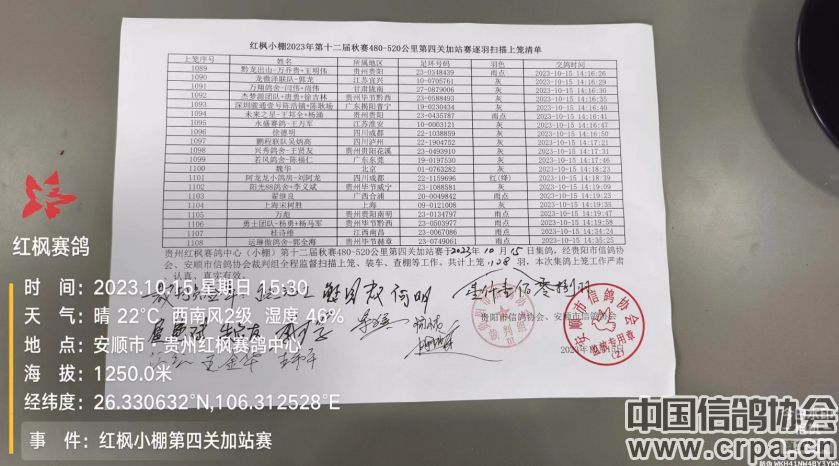 红枫小棚2023年第十二届秋赛480-520公里第四关加站赛逐羽扫描上笼清单
上笼序号 鸽主姓名 所属地区 足环号码 羽色 交鸽时间
1089 黔龙出山-万乔贵+王明伟 贵州贵阳 23-0348439 雨点 2023-10-15 14:16:26
1090 龙微泽联队-郭龙 江苏宜兴 23-0105761 灰 2023-10-15 14:16:29
1091 万翔鸽舍-闫伟+尚伟 甘肃陇南 27-0879006 灰 2023-10-15 14:16:31
1092 杰梦源团队+唐勇+徐吉林 贵州毕节黔西 23-0588493 灰 2023-10-15 14:16:34
1093 深圳骏通壹号陈浩镇+陈耿场 广东揭阳普宁 19-0230434 灰 2023-10-15 14:16:38
1094 未来之星-王邦全+杨涵 贵州贵阳 23-0435787 雨点 2023-10-15 14:16:41
1095 永盛赛鸽-王万军 江苏淮安 10-0003121 灰 2023-10-15 14:16:47
1096 徐德明 四川成都 22-1038859 灰 2023-10-15 14:16:50
1097 鹏程联队吴炳高 四川泸州 22-1904752 灰 2023-10-15 14:16:52
1098 兴秀鸽舍-王贤友 贵州贵阳花溪 23-0493910 灰 2023-10-15 14:17:31
1099 若风鸽舍-陈福仁 广东东莞 19-0197530 灰 2023-10-15 14:17:46
1100 魏华 北京 01-0763282 灰 2023-10-15 14:18:23
1101 阿龙龙小鸽房-刘阿龙 四川成都 22-1159696 红(绛) 2023-10-15 14:18:39
1102 阳光88鸽舍+李义斌 贵州毕节威宁 23-1088581 灰 2023-10-15 14:19:09
1103 翟继良 广西合浦 20-0049842 雨点 2023-10-15 14:19:13
1104 上海宋树胜 上海 09-0121008 灰 2023-10-15 14:19:31
1105 万彪 贵州贵阳南明 23-0134797 雨点 2023-10-15 14:19:34
1106 勇士团队-杨勇+杨马军 贵州毕节黔西 23-0546908 雨点 2023-10-15 14:19:58
1107 杜诗维 江西南昌 23-0067086 雨点
1108 运琳傲鸽舍-郭全海 贵州毕节赫章 23-0749061 雨点
贵州红枫赛鸽中心（小棚）第十二届秋赛480-520公里第四关加站赛于2023年10月15日集鸽，经贵阳市信鸽协
会、安顺市信鸽协会裁判组全程监督扫描上笼、装车、查棚等工作。共计上笼1108羽，本次集鸽上笼工作严肃
认真、真实有效。
贵阳市信鸽协会、安顺市信鸽协会
2023年10月15日
安顺市信鸽协会
裁判组
红枫赛鸽
时 间：2023.10.15 星期日 15:30
天 气：晴 22℃ 西南风2级 湿度 46%
地 点：安顺市 · 贵州红枫赛鸽中心
海 拔：1250.0米
经纬度：26.330632°N,106.312528°E
事 件：红枫小棚第四关加站赛
中国信鸽协会
www.crpa.cn